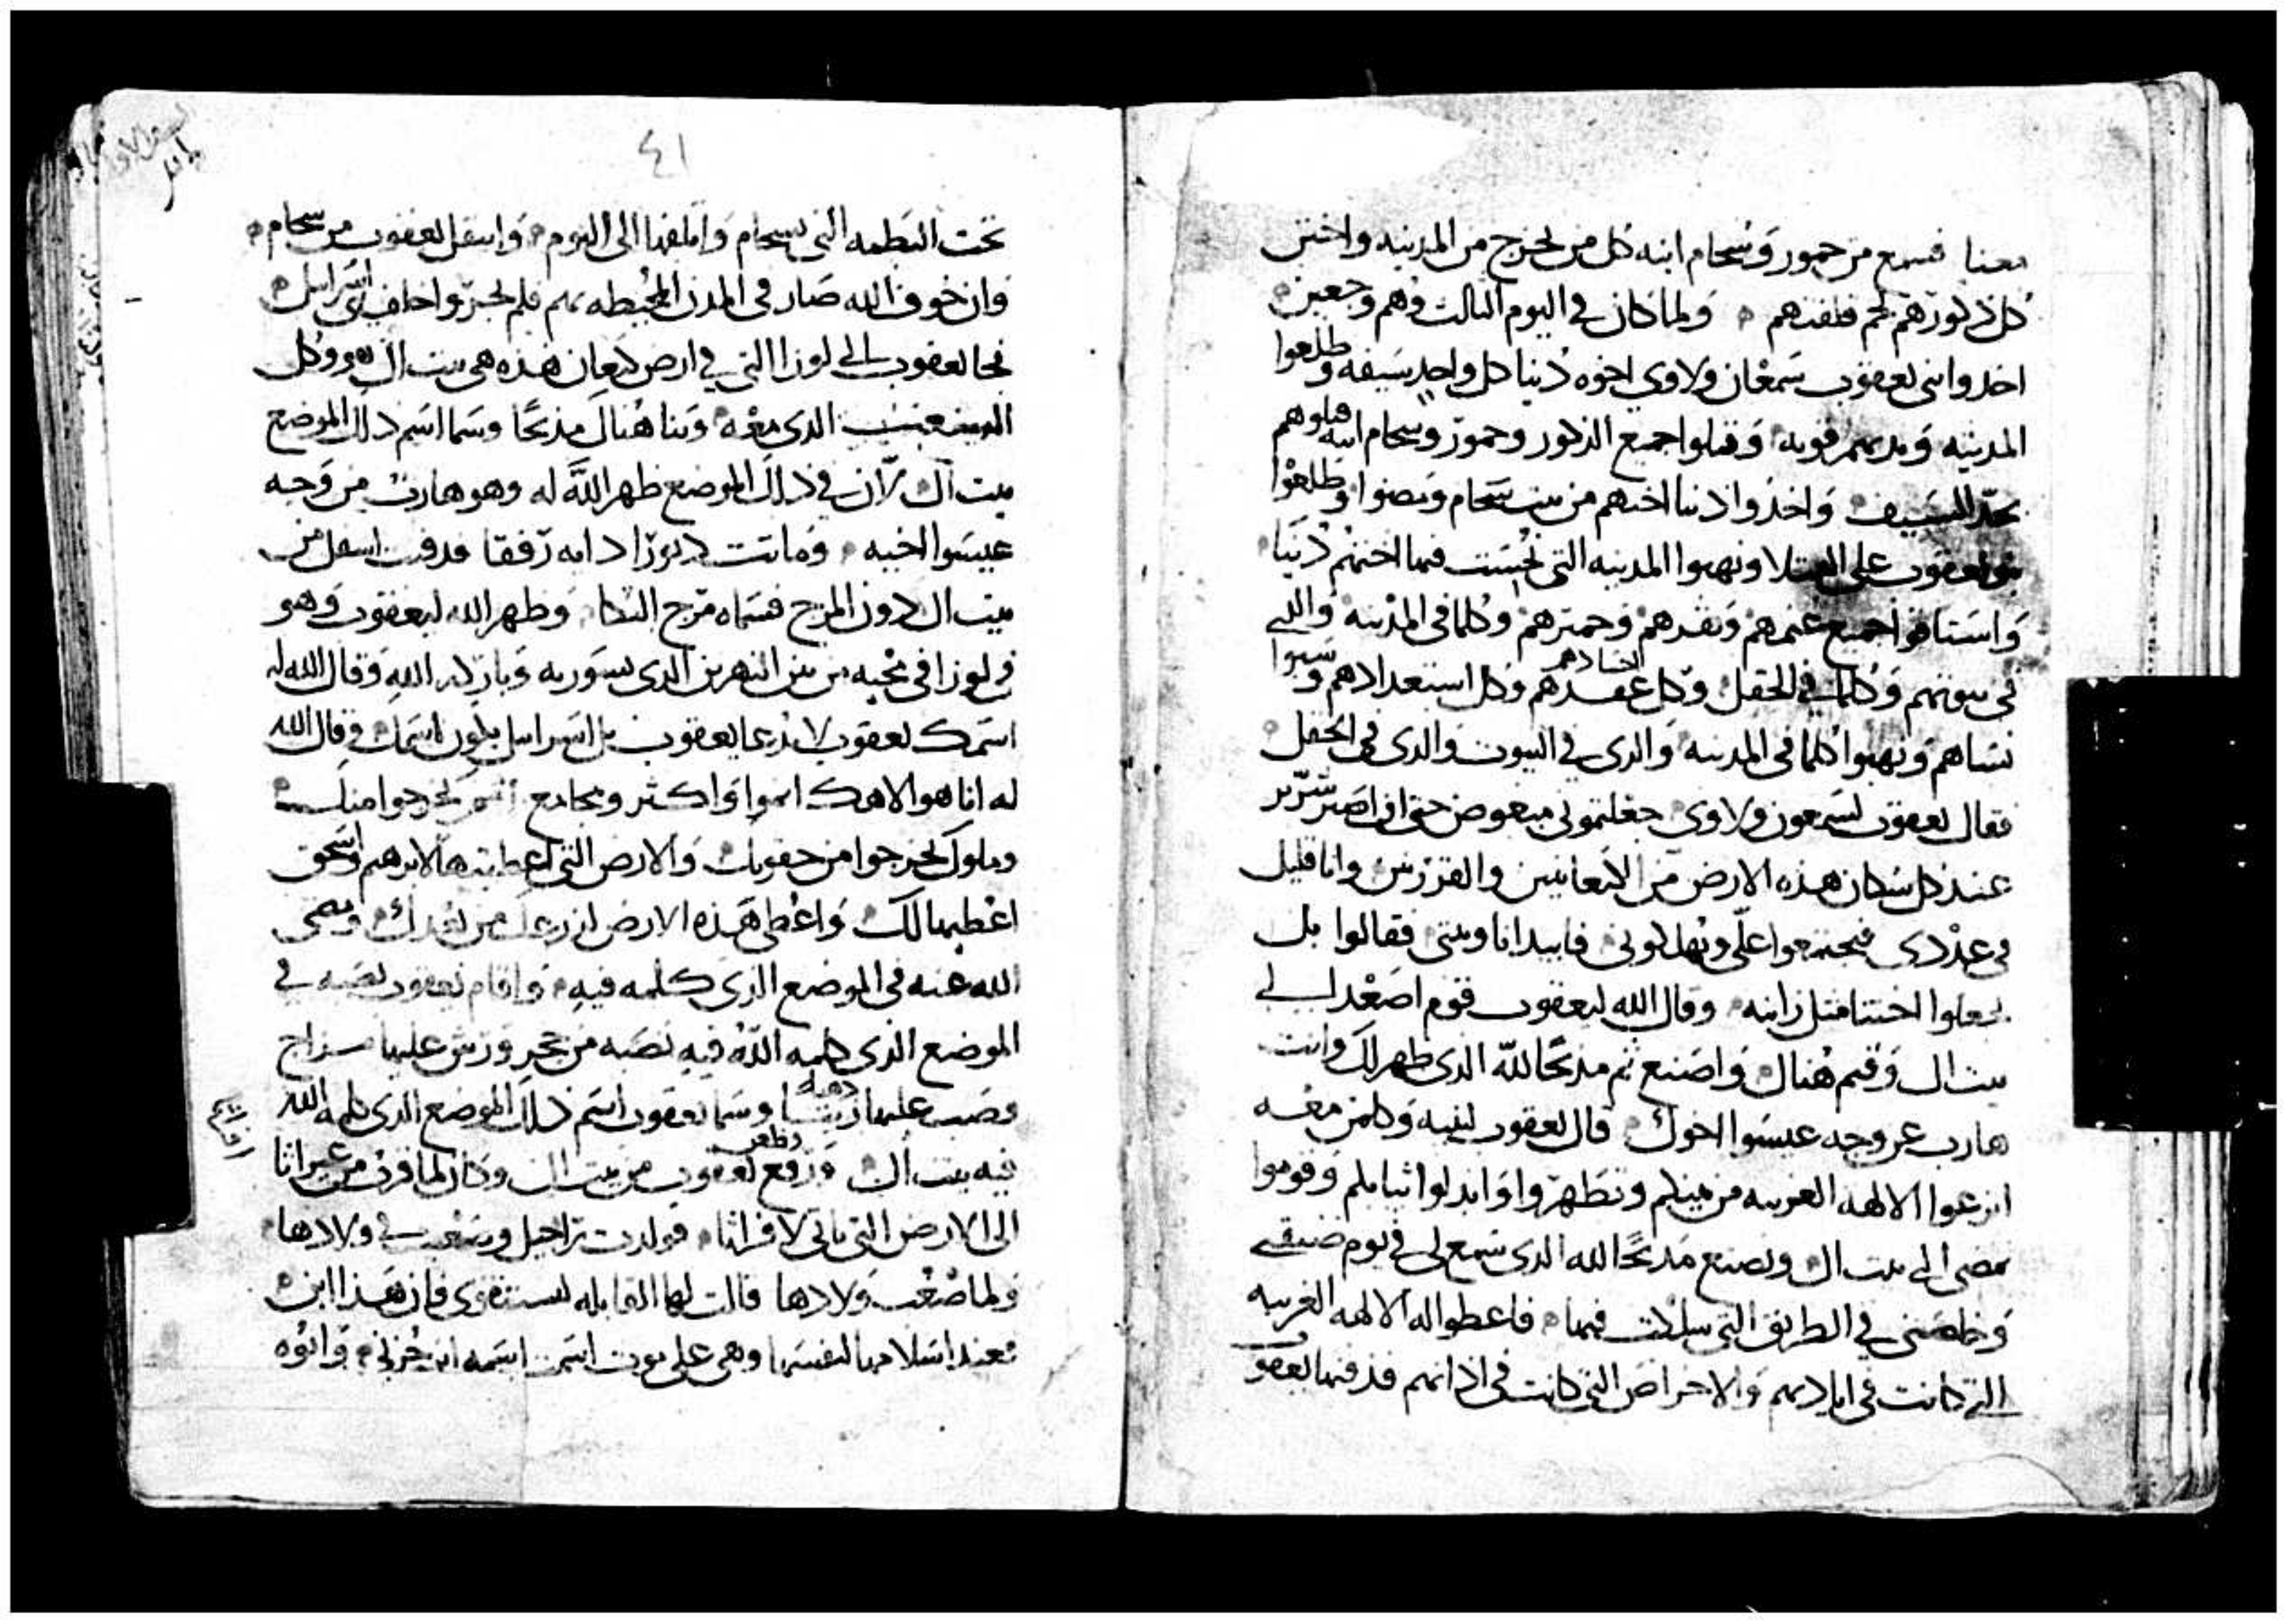 معنا فسمع من حمور وسحام ابنه كل من يخرج من المدينه واختتن
كل ذكورهم لحم قلفتهم ولما كان في اليوم الثالث وهم وجعين
اخدوا ابنى يعقوب سمعان ولاوي اخوه دينا كل واحد سيفه وطلعوا
المدينه وقتلوا جميع الذكور وحمور وسحام ابنه قتلوهم
بحد السيف واخذوا دينا اختهم من بيت سحام ومضوا وطلعوا
بنو يعقوب على القتلا ونهبوا المدينه التى نجست فيها اختهم دينا
واستاقوا جميع غنمهم وبقرهم وحميرهم وكلما في المدينه والدي
في بيوتهم وكلما في الحقل وكل اجسادهم وكل استعدادهم وسبوا
نساهم ونهبوا كلما في المدينه والدى في البيوت والدى في الحقل
فقال يعقوب لسمعون ولاوي جعلتمونى مبغوض حتى انى اصير شرير
عند كل سكان هذه الارض من الكنعانيين والفرزين وانا قليل
في عددى فيجتمعوا علي ويهلكونى فابيد انا وبيتى فقالوا بل
يجعلوا اختنا مثل زانيه وقال الله ليعقوب قوم اصعد الى
بيت ال وقيم هناك واصنع ثم مذبحا لله الدى ظهر لك وانت
هارب عن وجه عيسوا اخوك قال يعقوب لبنيه وكلمن معه
انزعوا الالهه الغريبه من بينكم وتطهروا وابدلوا ثيابكم وقوموا
نمضى الى بيت ال ونصنع مذبحا لله الدى سمع لى في يوم ضيقى
وخلصنى في الطريق التى سلكت فيها فاعطوا له الالهه الغريبه
التي كانت في اياديهم والاخراص التى كانت في اذانهم فدفنها يعقوب
٤١
تحت البطمه التى بسحام واتلفها الى اليوم وانتقل يعقوب من سحام
وان خوف الله صار في المدن المحيطه بهم فلم يجروا خلف بنى اسرايل
فجا يعقوب الى لوزا التى في ارض كنعان هذه هى بيت ال هو وكل
الدى معه وبنا هناك مذبحا وسما اسم ذلك الموضع
بيت ال لان في ذلك الموضع ظهر الله له وهو هارب من وجه
عيسوا اخيه وماتت دبورا دايه رفقا فدفنت اسفل من
بيت ال دون المرج فسماه مرج البكا وظهر الله ليعقوب وهو
في لوزا في مجيه من بين النهرين الدى بسوريه وبارك له الله وقال الله له
اسمك يعقوب لا يدعا يعقوب بل اسراييل يكون اسمك وقال الله
له انا هو الاهك انموا واكثر ومجامع امم يخرجوا منك
وملوك يخرجوا من حقويك والارض التى اعطيتها لابرهيم واسحق
اعطيها لك واعطى هذه الارض لزرعك من بعدك ومضى
الله عنه في الموضع الدى كلمه فيه واقام يعقوب نصبه في
الموضع الدى كلمه الله فيه نصبه من حجر ورش عليها مزاج
وصب عليها زيتا وسما يعقوب اسم ذلك الموضع الدى كلمه الله
فيه بيت ال ورفع يعقوب من بيت ال وكان لما قرب من
الى الارض التى تاتى لافراثا فولدت راحيل وصعب في ولادها
ولما صعب ولادها قالت لها القابله تستقوى فان هذا ابن
فعند اسلامها لنفسها وهى على موت اسمت اسمه ابن حزني وابوه